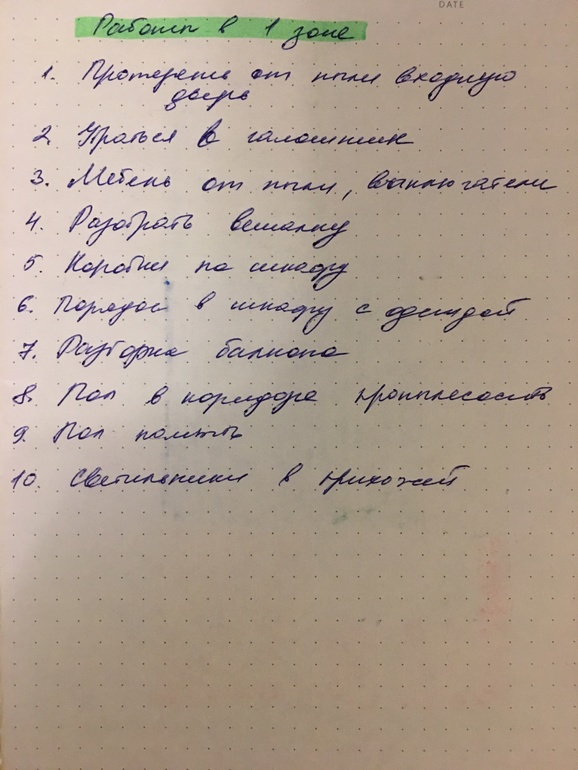 DATE
Работы в 1 зоне
1. Протереть от пыли входную
дверь
2. Убраться в галошник
3. Мебель от пыли, выключатели
4. Разобрать вешалку
5. Коробки по шкафу
6. Порядок в шкафу с одеждой
7. Разборка балкона
8. Пол в коридоре пропылесосить
9. Пол помыть
10. Светильники в прихожей